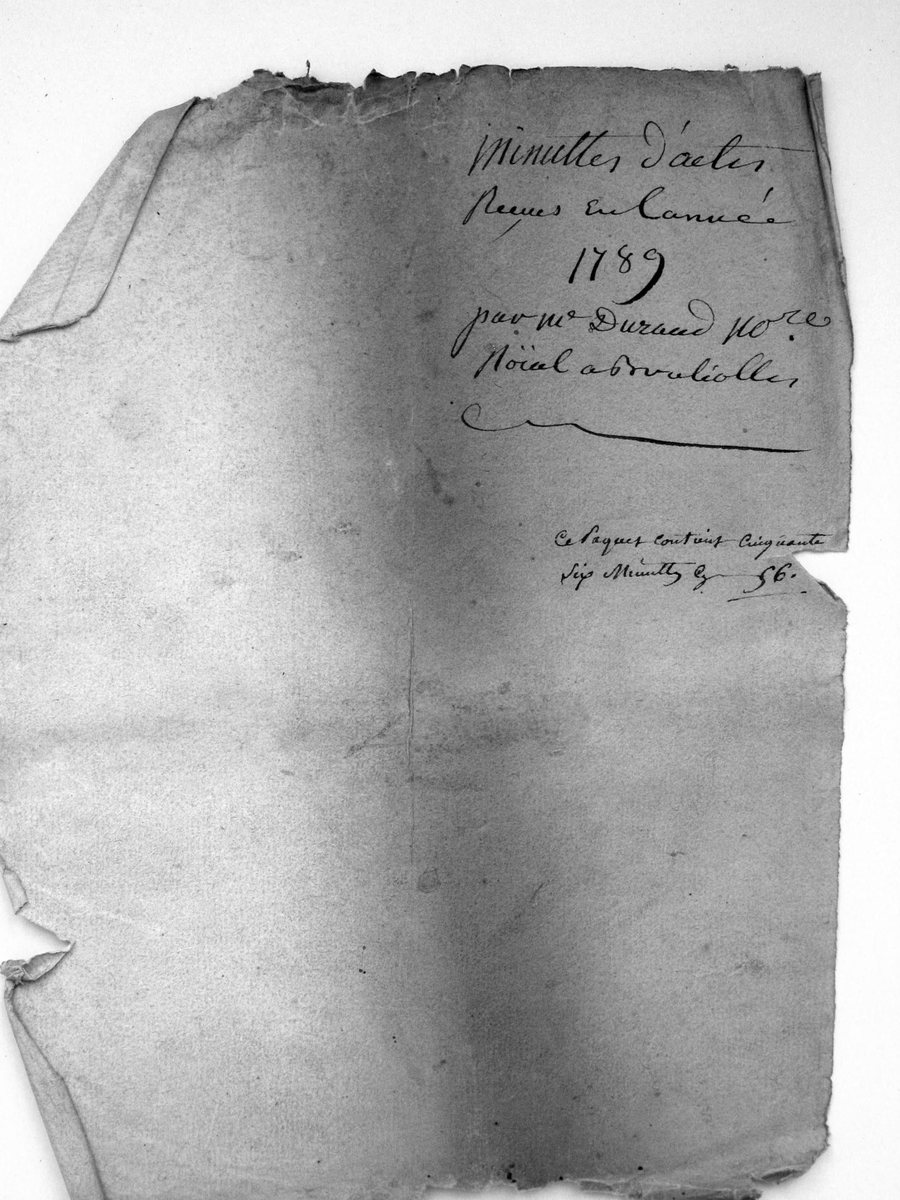 Minuttes d'actes
Reçues En Lannéé
1789
par me Durand no.re
Röial a
Ce Paquet contient Cinquante
Six Minuttes Cy 56.